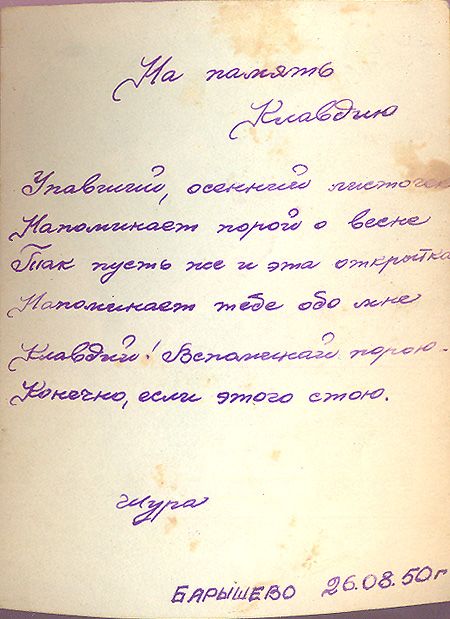 На память
Клавдию
Упавший, осенний листочек
Напоминает порой о весне
Так пусть же и эта открытка
Напоминает тебе обо мне
Клавдий! Вспоминай порою.
Конечно, если этого стою.
Шура
БАРЫШЕВО 26.08.50г